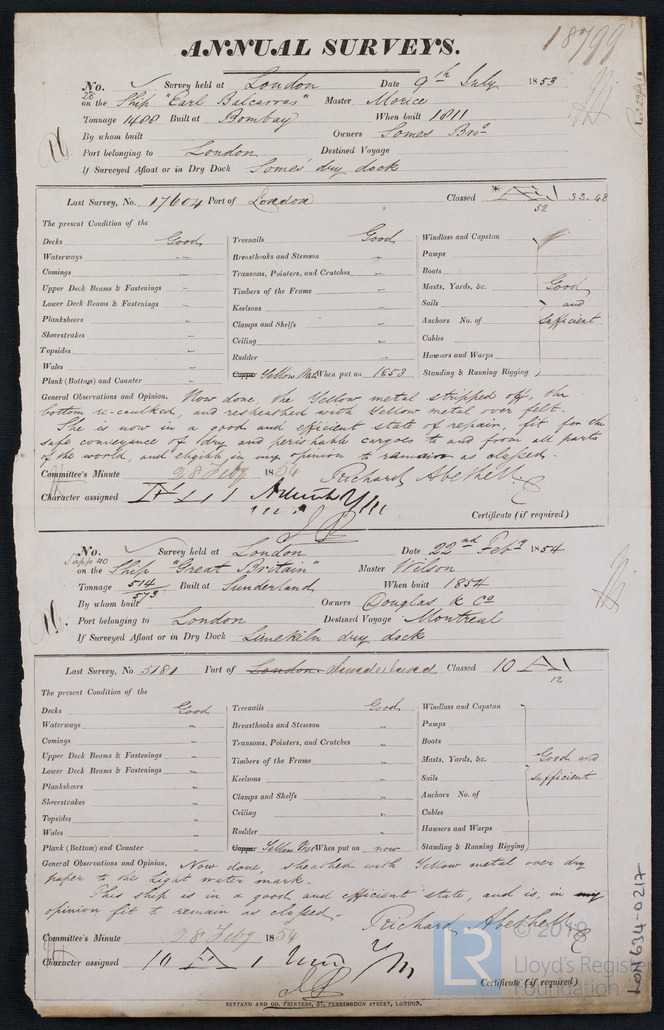 18799
ANNUAL SURVEYS.
No. Survey held at London Date 9th July 1853
28
on the Ship "Earl Balcarras" Master Morice
Tonnage 1488 Built at Bombay When built 1811
By whom built Owners Somes Bros
Port belonging to London Destined Voyage
If Surveyed Afloat or in Dry Dock Somes' dry dock
Last Survey, No. 17604 Port of London Classed
52
The present Condition of the
Decks Good Treenails Good Windlass and Capstan
Waterways Breasthooks and Stemson Pumps
Comings Transoms, Pointers, and Crutches Boats
Upper Deck Beams & Fastenings Timbers of the Frame Masts, Yards, &c. Good
Lower Deck Beams & Fastenings Keelsons Sails and
Planksheers Clamps and Shelfs Anchors No. of sufficient
Sheerstrakes Ceiling Cables
Topsides Rudder Hawsers and Warps
Wales Copper Yellow Met. When put on 1853 Standing & Running Rigging
Plank (Bottom) and Counter
General Observations and Opinion, Now done, the Yellow metal stripped off, the
bottom re-caulked, and resheathed with Yellow metal over felt.
She is now in a good and efficient state of repair, fit for the
safe conveyance of dry and perishable cargoes to and from all parts
of the world, and eligible in my opinion to remain as classed.
Committee's Minute 28 Feby 1854 Richard Abethell
Character assigned
Certificate (if required)
No. Survey held at London Date 22nd Feby 1854
Supp 40
on the Ship "Great Britain" Master Wilson
Tonnage 514/573 Built at Sunderland When built 1854
By whom built Owners Douglas & Co
Port belonging to London Destined Voyage Montreal
If Surveyed Afloat or in Dry Dock Limekiln dry dock
Last Survey, No. 5181 Port of London Sunderland Classed 10 A1
12
The present Condition of the
Decks Good Treenails Good Windlass and Capstan
Waterways Breasthooks and Stemson Pumps
Comings Transoms, Pointers, and Crutches Boats
Upper Deck Beams & Fastenings Timbers of the Frame Masts, Yards, &c. Good and
Lower Deck Beams & Fastenings Keelsons Sails sufficient
Planksheers Clamps and Shelfs Anchors No. of
Sheerstrakes Ceiling Cables
Topsides Rudder Hawsers and Warps
Wales Copper Yellow Met When put on now Standing & Running Rigging
Plank (Bottom) and Counter
General Observations and Opinion, Now done, sheathed with Yellow metal over dry
paper to the light water mark.
This ship is in a good and efficient state, and is, in my
opinion fit to remain as classed.
Richard Abethell
Committee's Minute 28 Feby 1854
Character assigned 10 A 1
Certificate (if required)
SEYFANG AND CO. PRINTERS, 57, FARRINGDON STREET, LONDON.
LON634-0217
LR © 2019
Lloyd's Register
Foundation